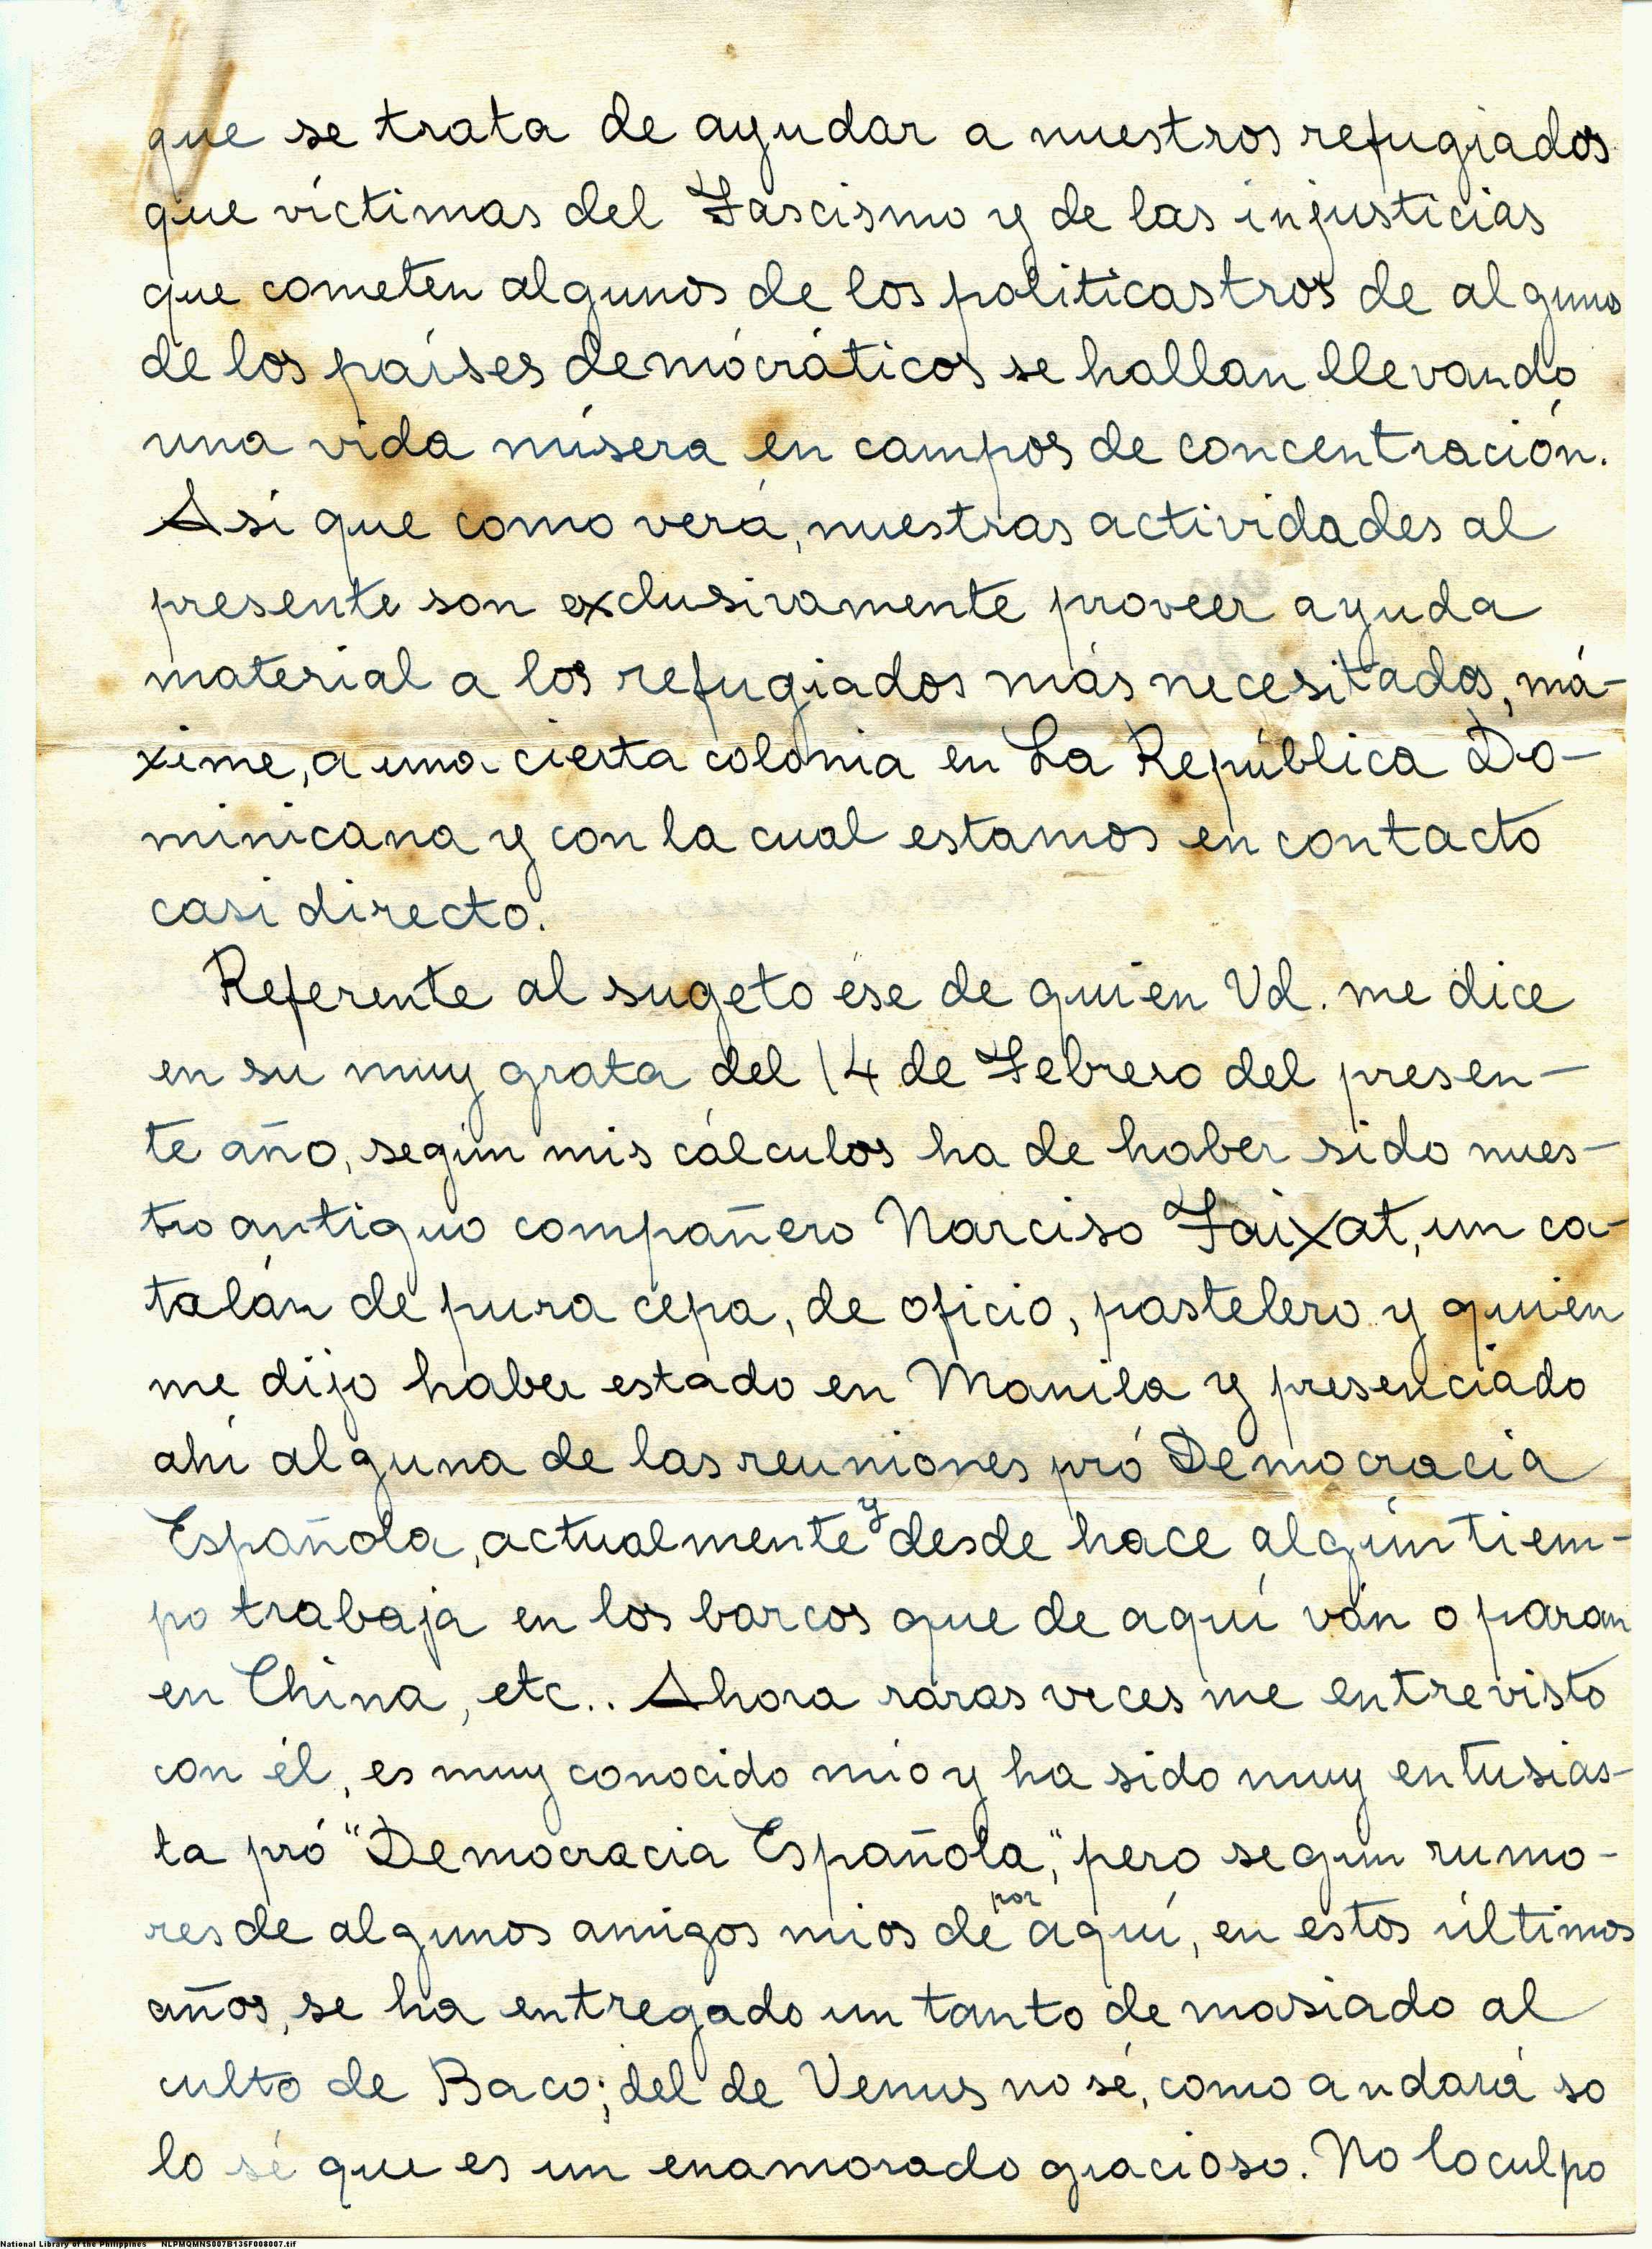 que se trata de ayudar a nuestros refugiados
que víctimas del Fascismo y de las injusticias
que cometen algunos de los politicastros de alguno
de los países demócráticos se hallan llevando
una vida mísera en campos de concentración.
Así que como verá, nuestras actividades al
presente son exclusivamente proveer ayuda
material a los refugiados más necesitados, má-
xime, a una cierta colonia en La República Do-
minicana y con la cual estamos en contacto
casi directo.
Referente al sugeto ése de quien Vd. me dice
en su muy grata del 14 de Febrero del presen-
te año, según mis cálculos ha de haber sido nues-
tro antiguo compañero Narciso Faixat, un ca-
talán de pura cepa, de oficio, pastelero y quien
me dijo haber estado en Manila y presenciado
ahí alguna de las reuniones pró Democracia
Española, actualmente y desde hace algún tiem-
po trabaja en los barcos que de aquí ván o paran
en China, etc.. Ahora raras veces me entrevisto
con él, es muy conocido mío y ha sido muy entusias-
ta pró "Democracia Española," pero segun rumo-
res de algunos amigos mios de por aquí, en estos últimos
años, se ha entregado un tanto demasiado al
culto de Baco; del de Venus no sé, como andará so
lo sé que es un enamorado gracioso. No lo culpo
National Library of the Philippines NLPMQMNS007B135F008007.tif